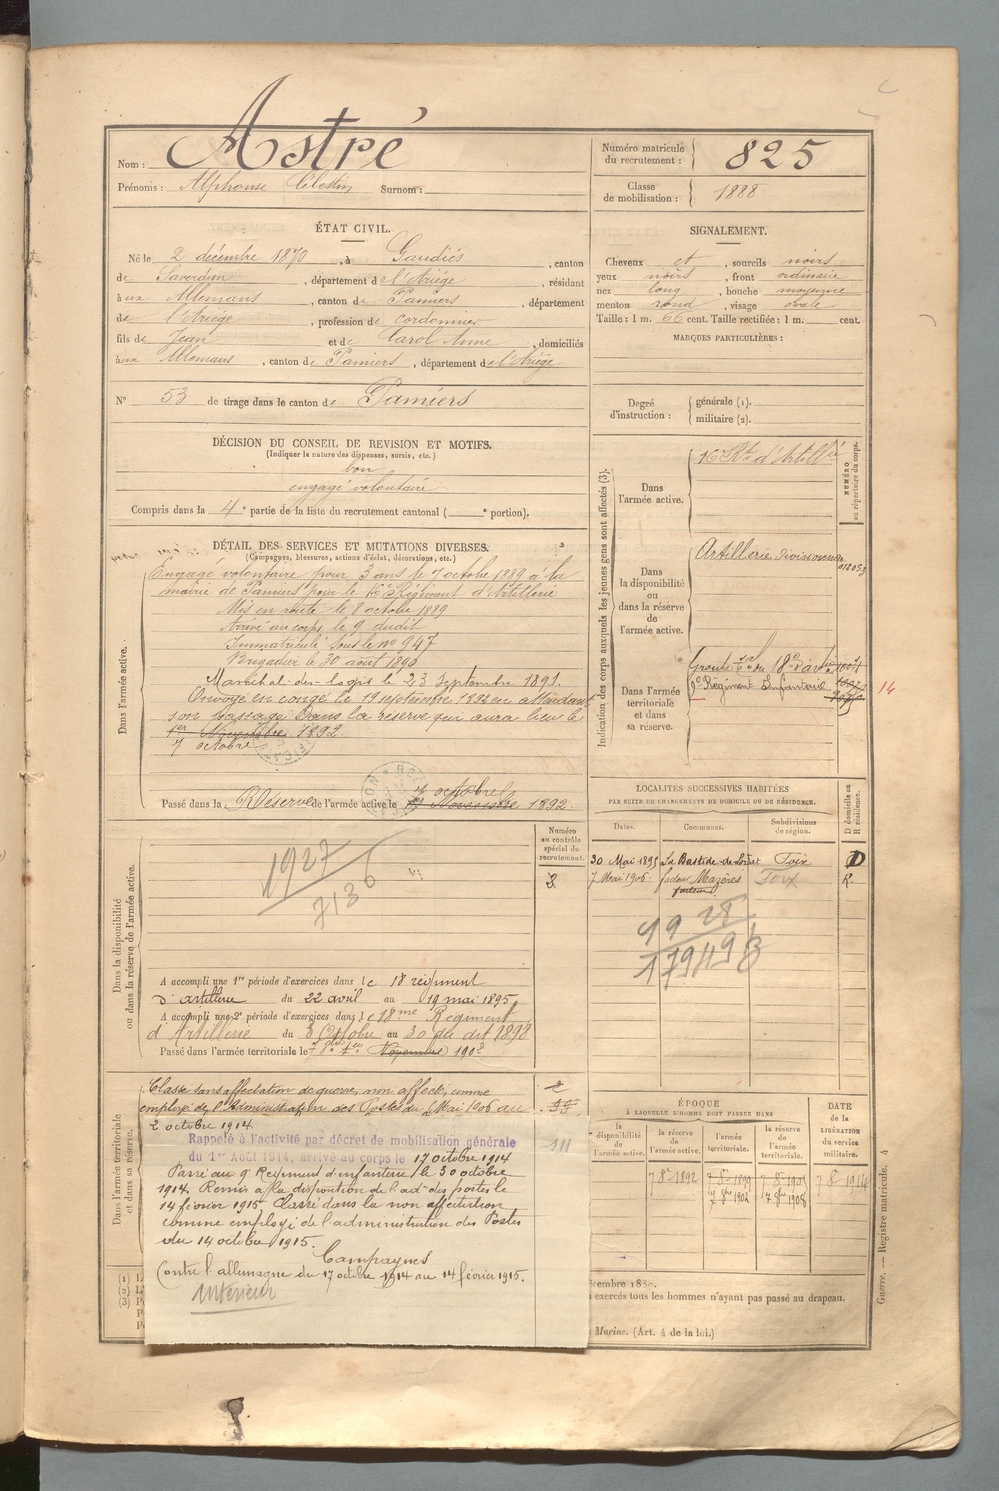 Nom : Astré
Prénoms : Alphonse Célestin Surnom :
Numéro matricule du recrutement : 825
Classe de mobilisation : 1888
ÉTAT CIVIL.
Né le 2 décembre 1870, à Gaudiés, canton
de Saverdun, département de l'Ariége, résidant
à ux Allemans, canton de Pamiers, département
de l'Ariége, profession de cordonnier
fils de Jean et de Carol Anne, domiciliés
à ux Allemans, canton de Pamiers, département de l'Ariége
N° 53 de tirage dans le canton de Pamiers
SIGNALEMENT.
Cheveux et, sourcils noirs
yeux noirs, front ordinaire
nez long, bouche moyenne
menton rond, visage ovale
Taille : 1 m. 66 cent. Taille rectifiée : 1 m. cent.
MARQUES PARTICULIÈRES :
Degré d'instruction : générale (1).
militaire (2).
DÉCISION DU CONSEIL DE REVISION ET MOTIFS.
(Indiquer la nature des dispenses, sursis, etc.)
bon
engagé volontaire
Compris dans la 4e partie de la liste du recrutement cantonal ( e portion).
DÉTAIL DES SERVICES ET MUTATIONS DIVERSES.
(Campagnes, blessures, actions d'éclat, décorations, etc.)
Dans l'armée active.
Engagé volontaire pour 3 ans le 7 octobre 1889 à la
mairie de Pamiers pour le Régiment d'Artillerie
Mis en route le 8 octobre 1889
Arrivé au corps le 9 dudit
Immatriculé sous le no 947
Brigadier le 30 août 1890
Maréchal-des-logis le 23 Septembre 1891.
Envoyé en congé le 19 septembre 1892 en attendant
son passage dans la réserve qui aura lieu le
1er Novembre 1892.
7 octobre
Passé dans la Réserve de l'armée active le 1er Novembre 1892.
7 octobre
Indication des corps auxquels les jeunes gens sont affectés (3).
NUMÉRO au répertoire du corps.
Dans l'armée active.
d'Artillie
Dans la disponibilité ou dans la réserve de l'armée active.
Artillerie divisionnaire
Dans l'armée territoriale et dans sa réserve.
Groupe du 18e d'artie
9e Régiment Infanterie
14
LOCALITÉS SUCCESSIVES HABITÉES
PAR SUITE DE CHANGEMENTS DE DOMICILE OU DE RÉSIDENCE.
Dates. Communes. Subdivisions de région. D domicile ou R résidence.
30 Mai 1895 La Bastide-de-Lordat Foix D
7 Mai 1906 facteur Mazères Foix R
facteur
1928
Dans la disponibilité ou dans la réserve de l'armée active.
Numéro au contrôle spécial du recrutement.
1927
7136
A accompli une 1re période d'exercices dans le 18 régiment
d'artillerie du 22 avril au 19 mai 1895
A accompli une 2e période d'exercices dans le 18me Régiment
d'Artillerie du 3 Octobre au 30 du dit 1898
Passé dans l'armée territoriale le Novembre 1902
Dans l'armée territoriale et dans sa réserve.
Classé sans affectation de guerre, non affecté, comme
employé de l'Administration des Postes du 7 Mai 1906 au
2 octobre 1914.
Rappelé à l'activité par décret de mobilisation générale
du 1er Août 1914, arrivé au corps le 17 octobre 1914
Passé au 9e Régiment d'infanterie le 30 octobre
1914. Remis à la disposition de l'ad-des postes le
14 février 1915. Classé dans la non affectation
comme employé de l'administration des Postes
du 14 octobre 1915.
Campagnes
Contre l'allemagne du 17 octobre 1914 au 14 février 1915.
Intérieur
111
ÉPOQUE
À LAQUELLE L'HOMME DOIT PASSER DANS
la disponibilité de l'armée active. la réserve de l'armée active. l'armée territoriale. la réserve de l'armée territoriale.
DATE de la LIBÉRATION du service militaire.
7 8bre 1892 7 8bre 1899 7 8bre 1914
7 8bre 1902 7 8bre 1908
exercés tous les hommes n'ayant pas passé au drapeau.
Marine. (Art. 4 de la loi.)
Guerre. — Registre matricule. 4